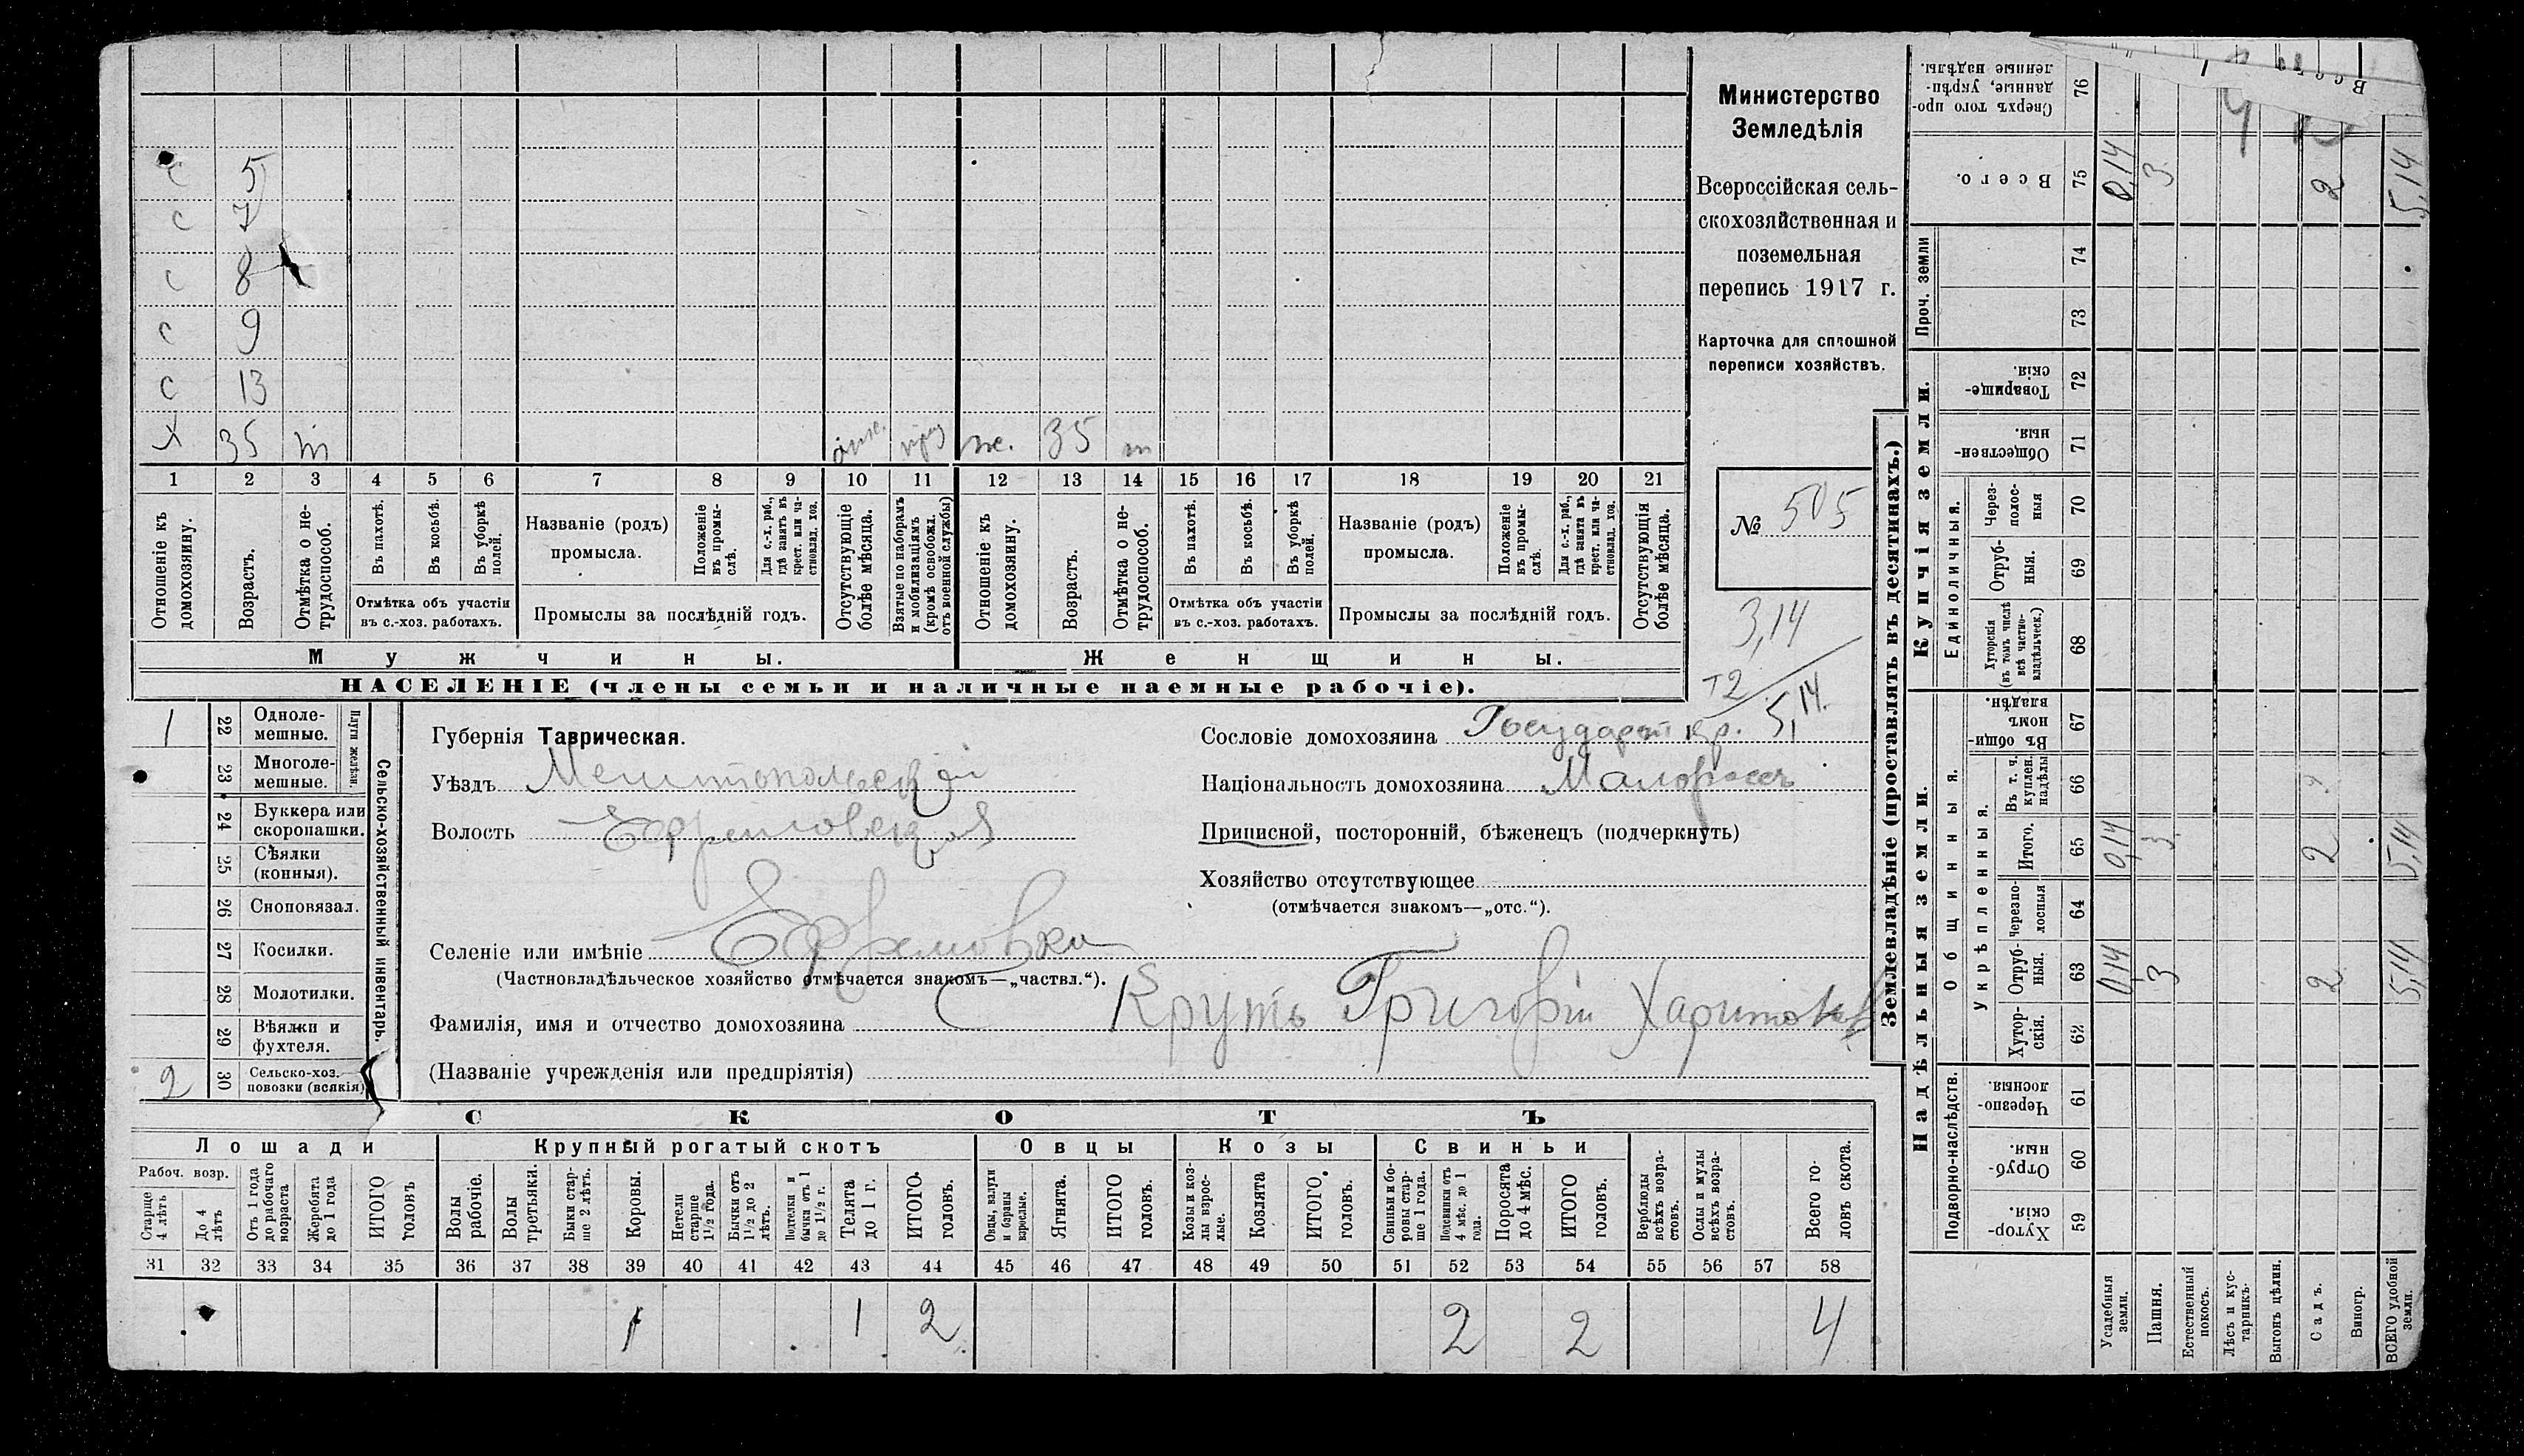 с 5
с 7
с 8
с 9
с 13
Х 35 т отс. ж. 35 т
1 2 3 4 5 6 7 8 9 10 11 12 13 14 15 16 17 18 19 20 21
Отношеніе къ домохозяину.
Возрастъ.
Отмѣтка о не-трудоспособ.
Въ пахотѣ.
Въ косьбѣ.
Въ уборкѣ полей.
Отмѣтка объ участіи
въ с.-хоз. работахъ.
Названіе (родъ)
промысла.
Положеніе въ промы-слѣ.
Для с.-х. раб., гдѣ занятъ въ крест. или ча-стновлад. хоз.
Промыслы за послѣдній годъ.
Отсутствующіе болѣе мѣсяца.
Взятые по наборамъ и мобилизаціямъ (кромѣ освобожд. отъ военной службы)
Отношеніе къ домохозяину.
Возрастъ.
Отмѣтка о не-трудоспособ.
Въ пахотѣ.
Въ косьбѣ.
Въ уборкѣ полей.
Отмѣтка объ участіи
въ с.-хоз. работахъ.
Названіе (родъ)
промысла.
Положеніе въ промы-слѣ.
Для с.-х. раб., гдѣ занята въ крест. или ча-стновлад. хоз.
Промыслы за послѣдній годъ.
Отсутствующія болѣе мѣсяца.
Мужчины.
Женщины.
НАСЕЛЕНІЕ (члены семьи и наличные наемные рабочіе).
Министерство
Земледѣлія
Всероссійская сель-
скохозяйственная и
поземельная
перепись 1917 г.
Карточка для сплошной
переписи хозяйствъ.
№ 505
3,14
+2
5,14.
Сельско-хозяйственный инвентарь.
Плуги желѣзн.
1 22 Одноле-мешные.
23 Многоле-мешные.
24 Буккера или скоропашки.
25 Сѣялки (конныя).
26 Сноповязал.
27 Косилки.
28 Молотилки.
29 Вѣялки и фухтеля.
2 30 Сельско-хоз. повозки (всякія)
Губернія Таврическая.
Уѣздъ Мелитопольскій
Волость Ефремовская
Селеніе или имѣніе Ефремовка
(Частновладѣльческое хозяйство отмѣчается знакомъ—„частвл.“).
Фамилія, имя и отчество домохозяина Круть Григорій Харитонов
(Названіе учрежденія или предпріятія)
Сословіе домохозяина Государст кр.
Національность домохозяина Малоросъ
Приписной, посторонній, бѣженецъ (подчеркнуть)
Хозяйство отсутствующее
(отмѣчается знакомъ—„отс.“).
СКОТЪ
Лошади Крупный рогатый скотъ Овцы Козы Свиньи
Рабоч. возр.
Старше 4 лѣтъ
До 4 лѣтъ
Отъ 1 года до рабочаго возраста
Жеребята до 1 года
ИТОГО головъ
Волы рабочіе.
Волы третьяки.
Быки стар-ше 2 лѣтъ.
Коровы.
Нетели старше 1½ года.
Бычки отъ 1½ до 2 лѣтъ.
Подтелки и бычки отъ 1 до 1½ г.
Телята до 1 г.
ИТОГО головъ.
Овцы, валухи и бараны взрослые.
Ягнята.
ИТОГО головъ.
Козы и коз-лы взрос-лые.
Козлята
ИТОГО головъ.
Свиньи и бо-ровы стар-ше 1 года.
Подсвинки отъ 4 мѣс. до 1 года.
Поросята до 4 мѣс.
ИТОГО головъ.
Верблюды всѣхъ возра-стовъ.
Ослы и мулы всѣхъ возра-стовъ.
Всего го-ловъ скота.
31 32 33 34 35 36 37 38 39 40 41 42 43 44 45 46 47 48 49 50 51 52 53 54 55 56 57 58
1 1 2 2 2 4
Землевладѣніе (проставлять въ десятинахъ.)
Надѣльныя земли.
Купчія земли.
Проч. земли
Подворно-наслѣдств.
Общинныя.
Укрѣпленныя.
Единоличныя.
Сверхъ того про-данные, укрѣп-ленные надѣлы. 76
Всего. 75 0,14 3 2 5,14
74
73
Товарище-скія. 72
Обществен-ныя. 71
Через-полос-ныя 70
Отруб-ныя. 69
Хуторскія (въ томъ числѣ всѣ частно-владѣльческ.) 68
Въ общин-номъ владѣн. 67
Въ т. ч. куплен. надѣлы 66
Итого. 65 0,14 3 2 5,14
Черезпо-лосныя 64
Отруб-ныя. 63 0,14 3 2 5,14
Хутор-скія. 62
Черезпо-лосныя. 61
Отруб-ныя. 60
Хутор-скія. 59
Усадебныя земли.
Пашня.
Естественный покосъ.
Лѣсъ и кус-тарникъ.
Выгонъ цѣлин.
Садъ.
Виногр.
ВСЕГО удобной земли.
Всего